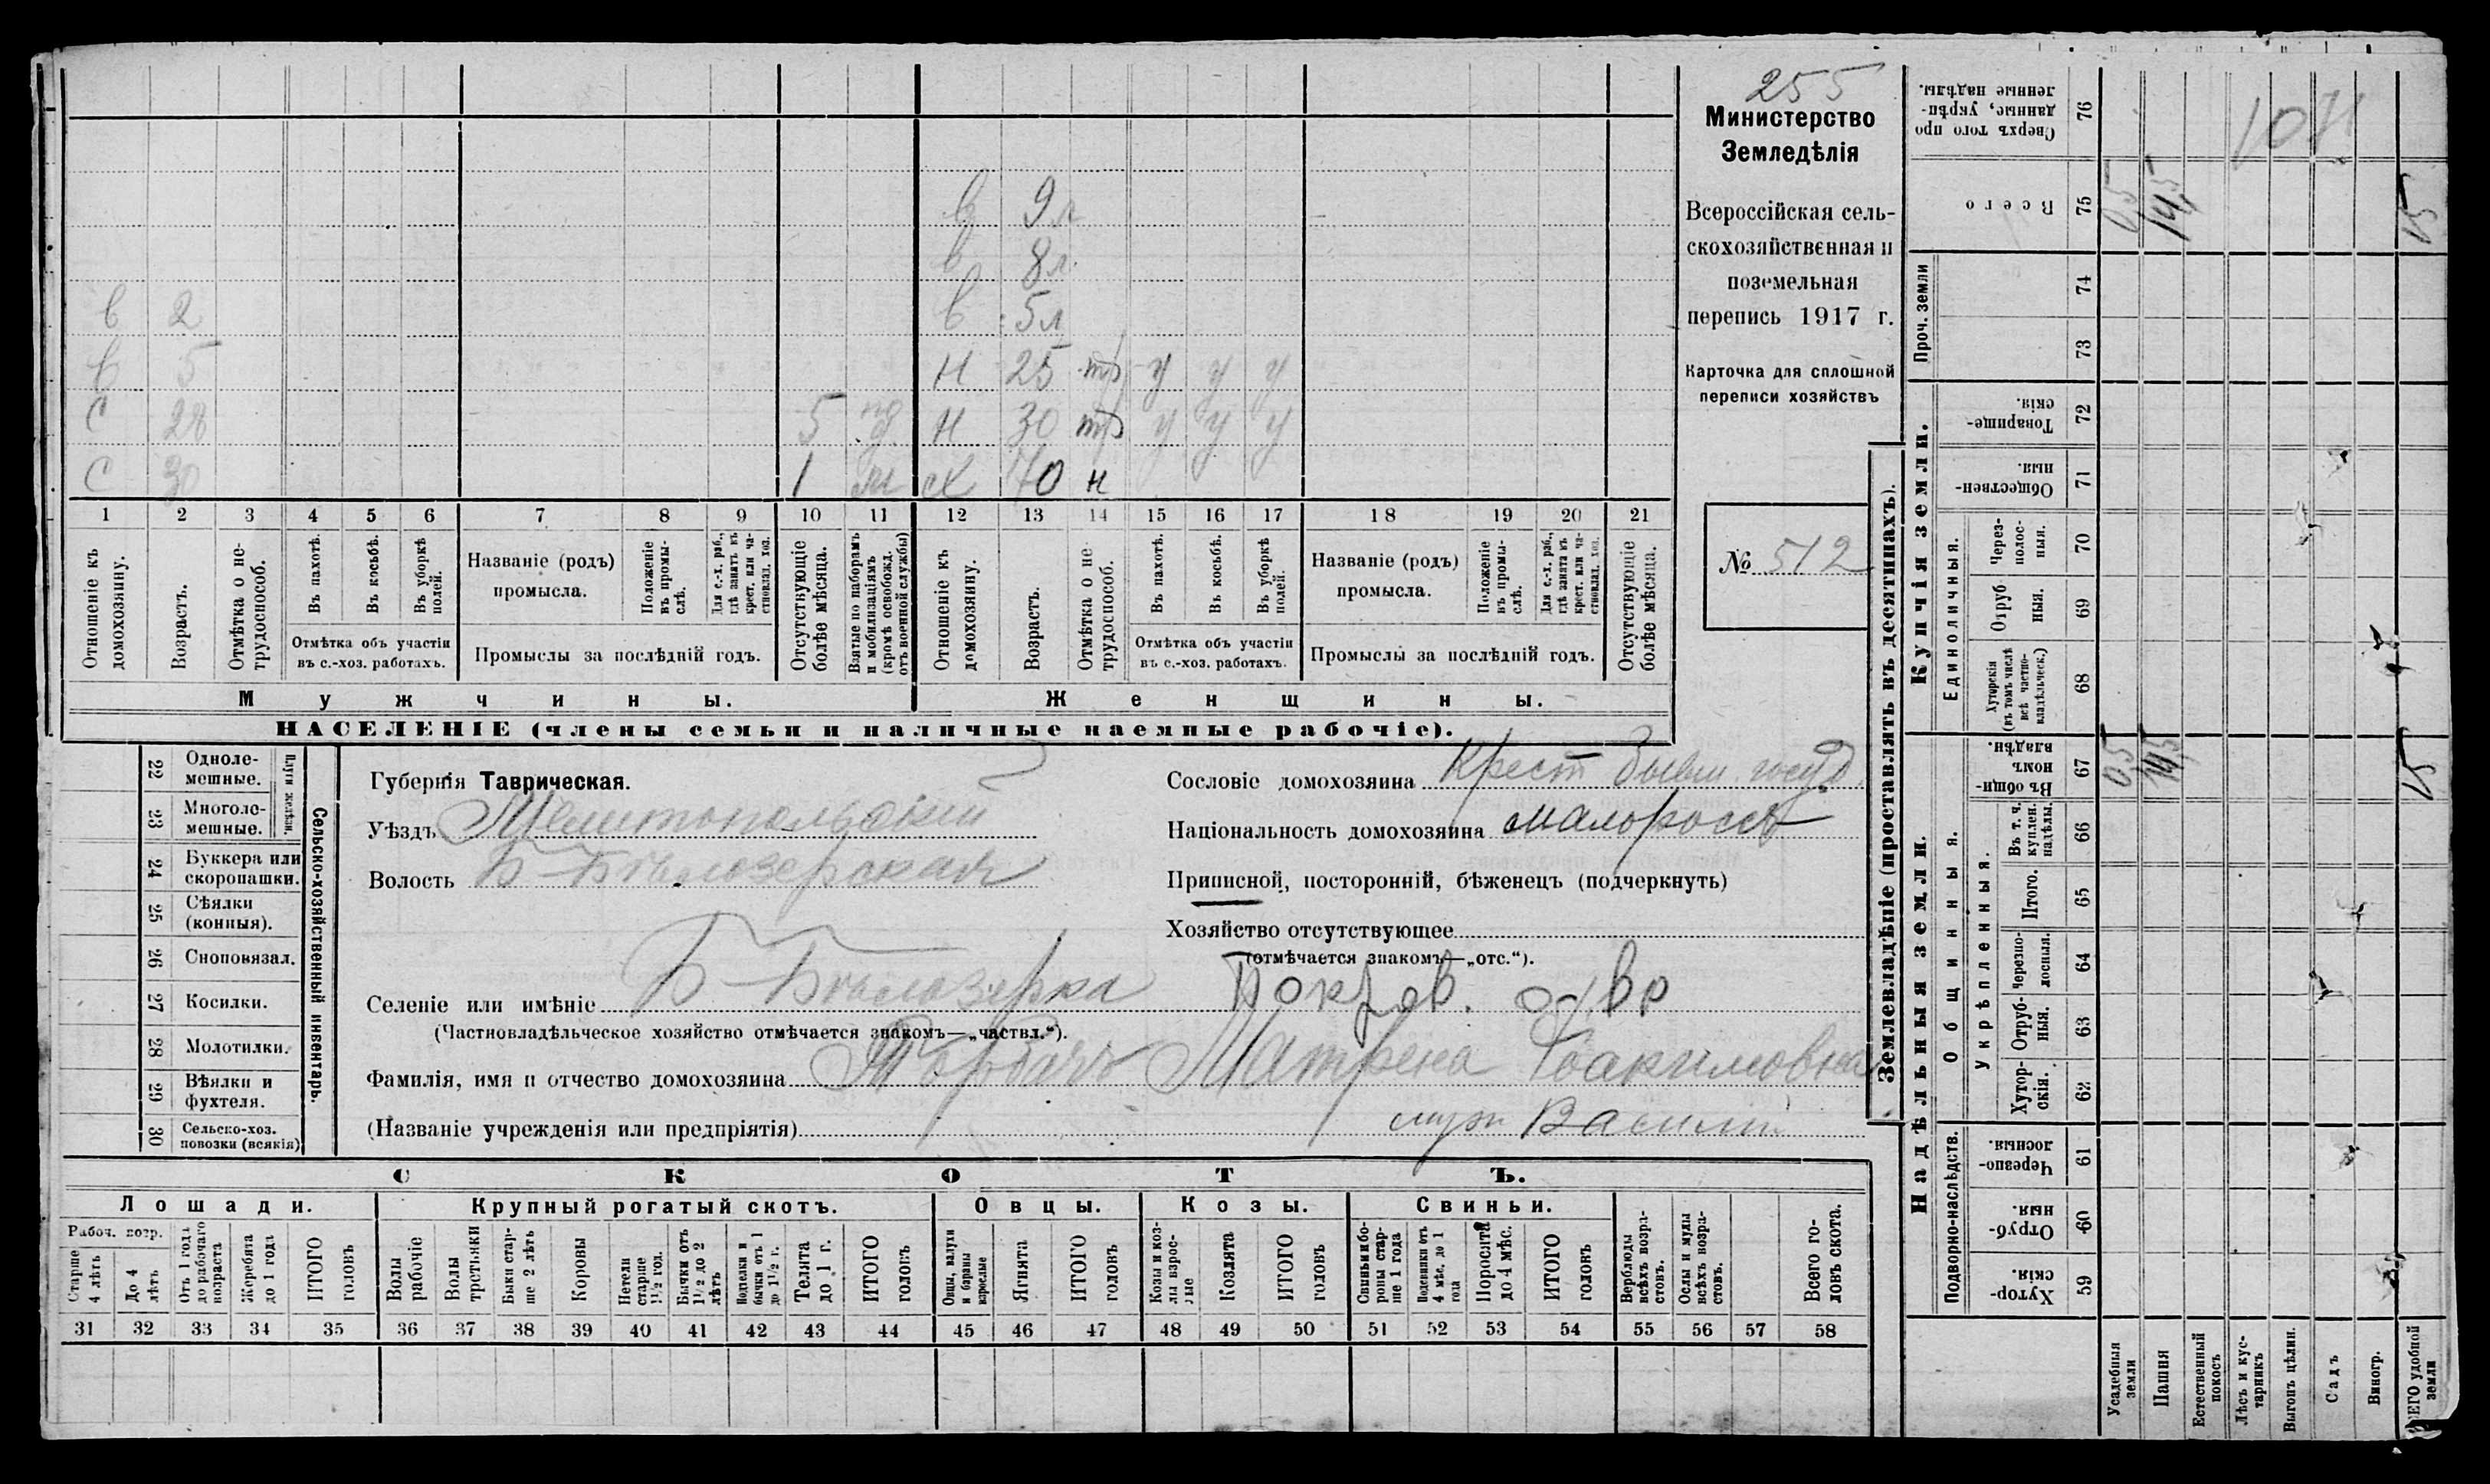 255
Министерство
Земледѣлія
Всероссійская сель-
скохозяйственная и
поземельная
перепись 1917 г.
Карточка для сплошной
переписи хозяйствъ
№ 512
в 9 л
в 8 л.
в 2 в 5 л
в 5 н 25 тр у у у
с 28 5 н 30 тр у у у
с 30 1 м 70 н
1 2 3 4 5 6 7 8 9 10 11 12 13 14 15 16 17 18 19 20 21
Отношеніе къ домохозяину.
Возрастъ.
Отмѣтка о не-трудоспособ.
Въ пахотѣ.
Въ косьбѣ.
Въ уборкѣ полей.
Отмѣтка объ участіи
въ с.-хоз. работахъ.
Названіе (родъ)
промысла.
Положеніе въ промы-слѣ.
Для с.-х. раб., гдѣ занятъ въ крест. или ча-стновлад. хоз.
Промыслы за послѣдній годъ.
Отсутствующіе болѣе мѣсяца.
Взятые по наборамъ и мобилизаціямъ (кромѣ освобожд. отъ военной службы)
Отношеніе къ домохозяину.
Возрастъ.
Отмѣтка о не-трудоспособ.
Въ пахотѣ.
Въ косьбѣ.
Въ уборкѣ полей.
Отмѣтка объ участіи
въ с.-хоз. работахъ.
Названіе (родъ)
промысла.
Положеніе въ промы-слѣ.
Для с.-х. раб., гдѣ занятъ въ крест. или ча-стновлад. хоз.
Промыслы за послѣдній годъ.
Отсутствующіе болѣе мѣсяца.
Мужчины.
Женщины.
НАСЕЛЕНІЕ (члены семьи и наличные наемные рабочіе).
22 Одноле-мешные.
23 Многоле-мешные.
Плуги желѣзн.
24 Буккера или скоропашки.
25 Сѣялки (конныя).
26 Сноповязал.
27 Косилки.
28 Молотилки.
29 Вѣялки и фухтеля.
30 Сельско-хоз. повозки (всякія)
Сельско-хозяйственный инвентарь.
Губернія Таврическая.
Уѣздъ Мелитопольскій
Волость Б-Бѣлозерская
Селеніе или имѣніе Б-Бѣлозерка Покров.
(Частновладѣльческое хозяйство отмѣчается знакомъ—„частвл.“).
Фамилія, имя и отчество домохозяина Горбачъ Матрена Іоакимовна
(Названіе учрежденія или предпріятія) муж Василий
Сословіе домохозяина Крест бывш. госуд.
Національность домохозяина малороссъ
Приписной, посторонній, бѣженецъ (подчеркнуть)
Хозяйство отсутствующее
(отмѣчается знакомъ—„отс.“).
СКОТЪ.
Лошади. Крупный рогатый скотъ. Овцы. Козы. Свиньи.
Рабоч. возр.
Старше 4 лѣтъ
До 4 лѣтъ
Отъ 1 года до рабочаго возраста
Жеребята до 1 года
ИТОГО головъ
Волы рабочіе
Волы третьяки
Быки стар-ше 2 лѣтъ
Коровы
Нетели старше 1½ год.
Бычки отъ 1½ до 2 лѣтъ
Подтелки и бычки отъ 1 до 1½ г.
Телята до 1 г.
ИТОГО головъ
Овцы, валухи и бараны взрослые
Ягнята
ИТОГО головъ
Козы и коз-лы взрос-лые
Козлята
ИТОГО головъ
Свиньи и бо-ровы стар-ше 1 года
Подсвинки отъ 4 мѣс. до 1 года
Поросята до 4 мѣс.
ИТОГО головъ
Верблюды всѣхъ возра-стовъ.
Ослы и мулы всѣхъ возра-стовъ.
Всего го-ловъ скота.
31 32 33 34 35 36 37 38 39 40 41 42 43 44 45 46 47 48 49 50 51 52 53 54 55 56 57 58
Землевладѣніе (проставлять въ десятинахъ).
Надѣльныя земли.
Купчія земли.
Проч. земли
Подворно-наслѣдств.
Общинныя.
Укрѣпленныя.
Единоличныя.
Сверхъ того про-данные, укрѣп-ленные надѣлы. 76
Всего 75 0,5 14,5 15
74
73
Товарище-скія. 72
Обществен-ныя. 71
Через-полос-ныя. 70
Отруб ныя. 69
Хуторскія (въ томъ числѣ всѣ частно-владѣльческ.) 68
Въ общин-номъ владѣн. 67 0,5 14,5 15
Въ т. ч. куплен. надѣлы. 66
Итого. 65
Черезпо-лосныя. 64
Отруб-ныя. 63
Хутор-скія. 62
Черезпо-лосныя. 61
Отруб-ныя. 60
Хутор-скія. 59
Усадебныя земли
Пашня
Естественный покосъ
Лѣсъ и кус-тарникъ
Выгонъ цѣлин.
Садъ
Виногр.
ВСЕГО удобной земли